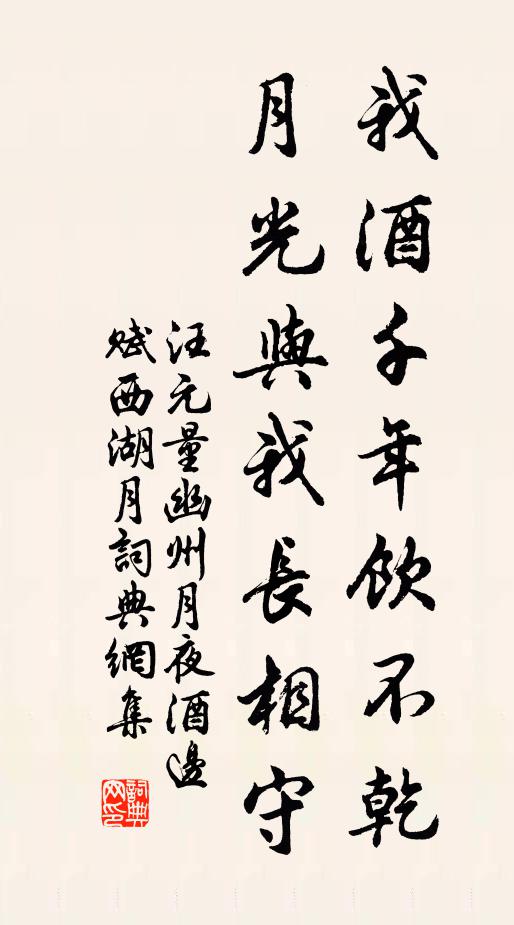 我酒千年飲不乾
月光與我長相守
汪元量幽州月夜酒邊
賦西湖月詞典網集
詞典网印